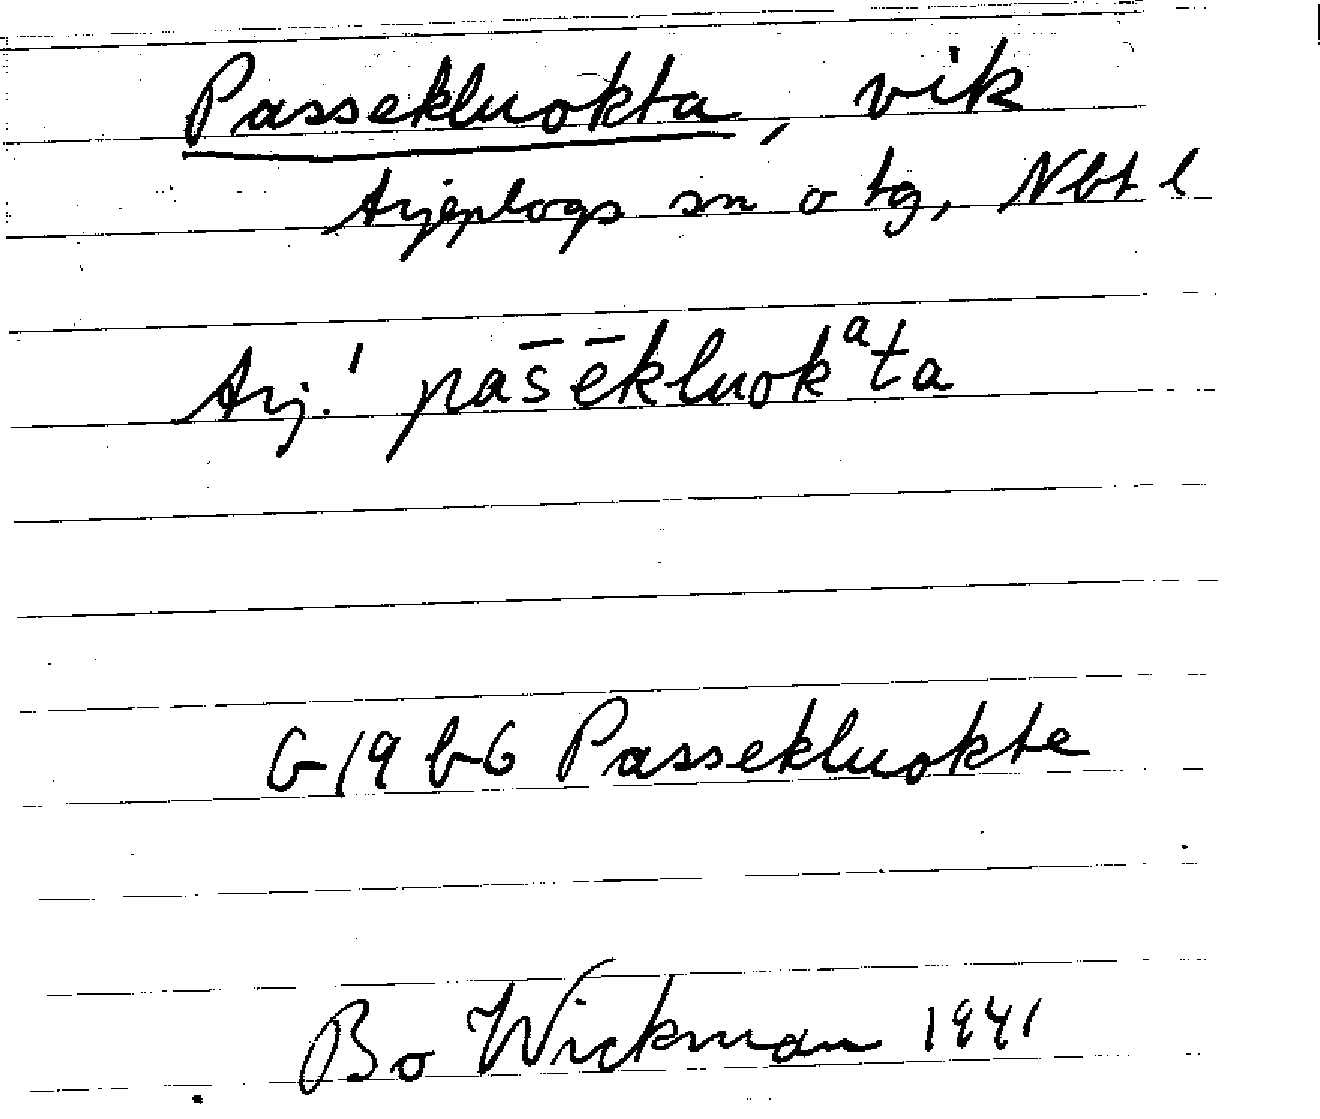 Passekluokta, vik
Arjeplogs sn o tg, Nbt l
Arj.' pas̄ēkluokᵃta
G 19 b6 Passekluokte
Bo Wickman 1941